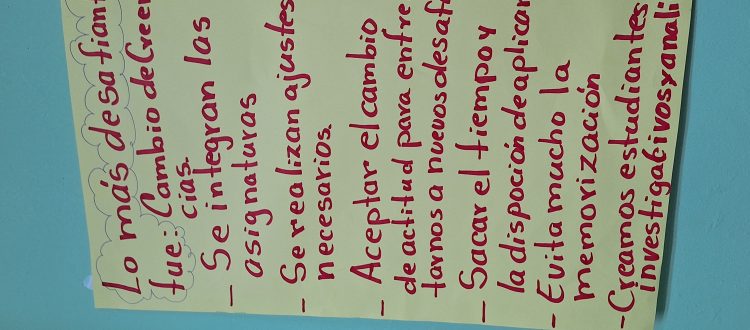 Lo más desafiant
fue: Cambio de Creen
cias.
- Se integran las
asignaturas
- Se realizan ajustes
necesarios.
- Aceptar el cambio
de actitud para enfre
tarnos a nuevos desaf
- Sacar el tiempo y
la dispoción de aplicar
- Evita mucho la
memorización
- Creamos estudiantes
investigativos y anali